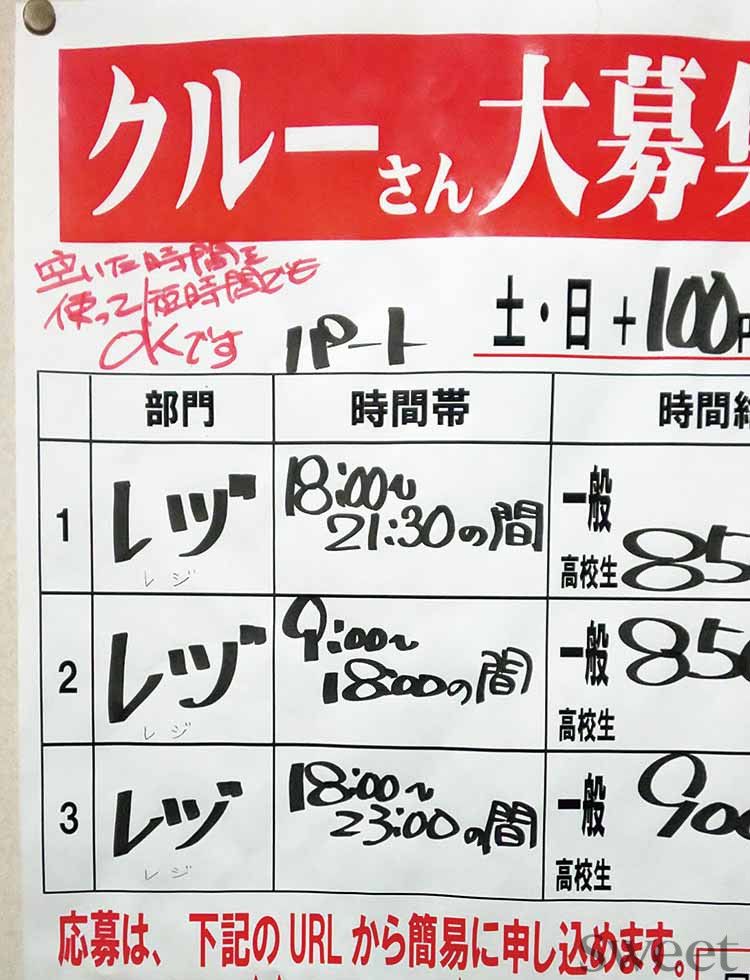 クルーさん大募集
空いた時間を
使って短時間でも
OKです
パート
土・日+100円
部門 時間帯 時間給
1
レヅ
レジ
18:00~
21:30の間
一般
高校生 85
2
レヅ
レジ
9:00~
18:00の間
一般 850
高校生
3
レヅ
レジ
18:00~
23:00の間
一般 900
高校生
応募は、下記のURLから簡易に申し込めます。
sweet